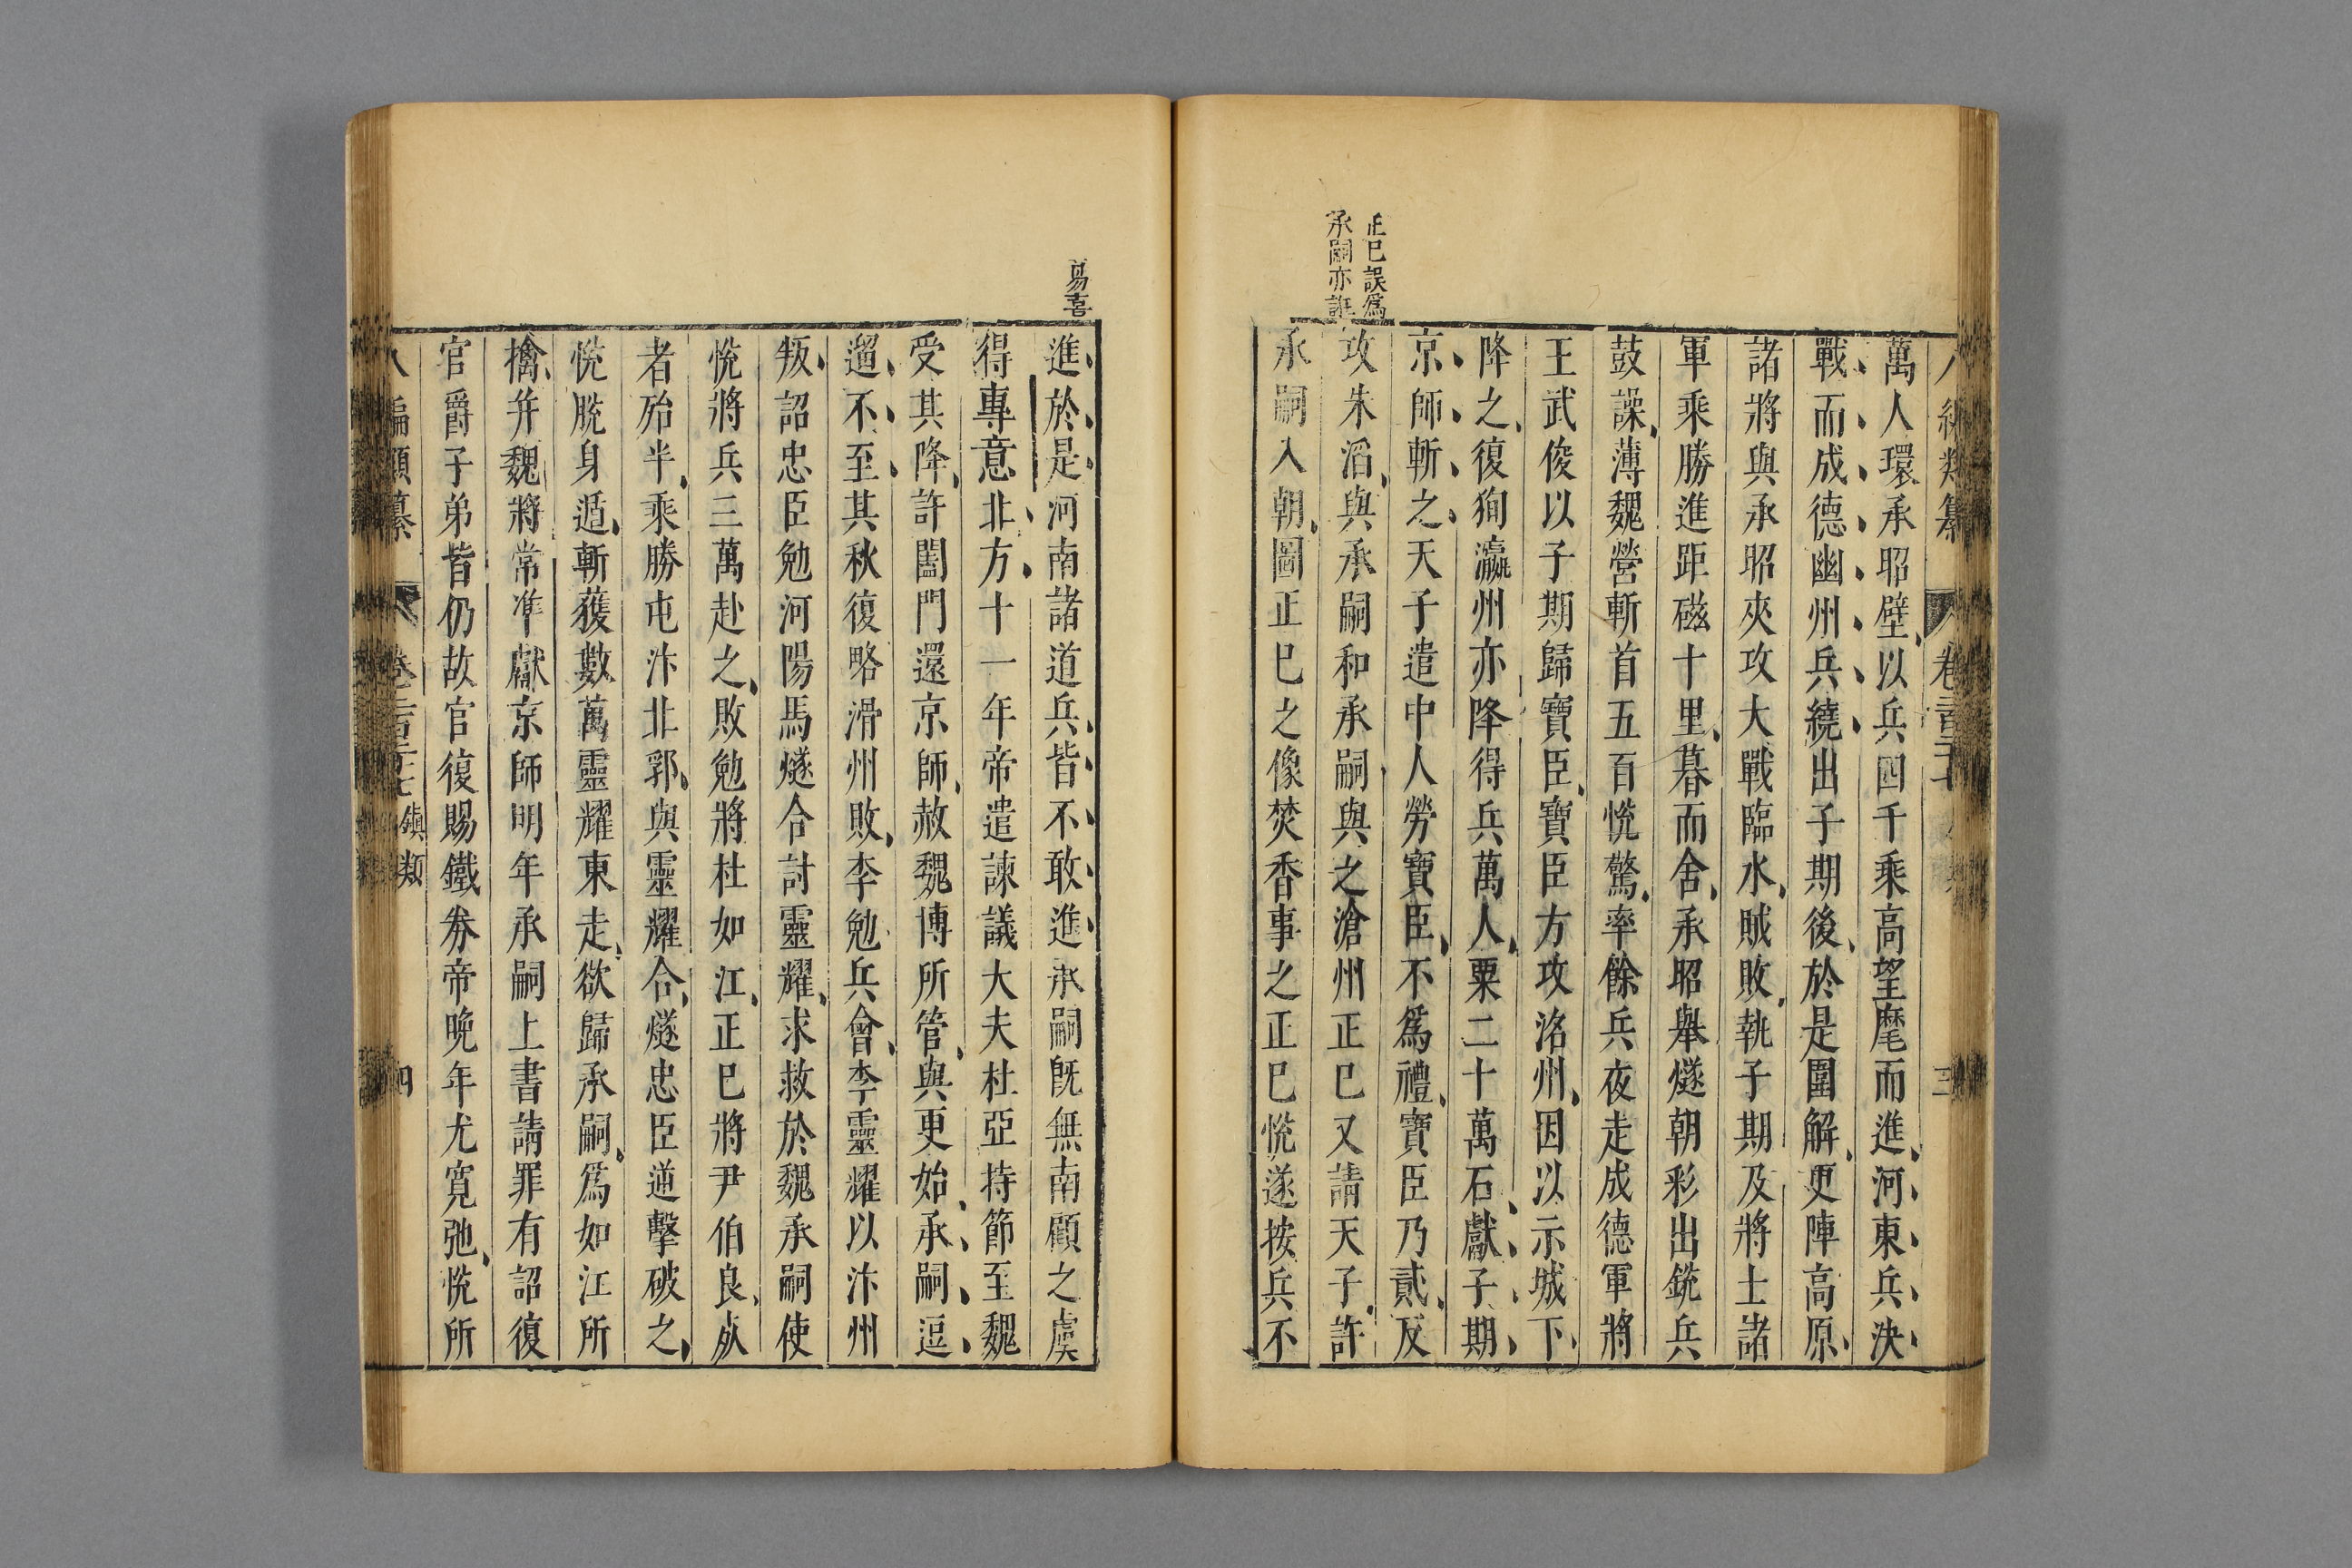 八編類纂
卷
三
萬人環承昭壁以兵四千乘高望麾而進河東兵決
戰而成德幽州兵繞出子期後於是圍解更陣高原
諸將與承昭夾攻大戰臨水賊敗執子期及將士諸
軍乘勝進距磁十里暮而舍承昭舉燧朝彩出銳兵
鼓譟薄魏營斬首五百悅驚率餘兵夜走成德軍將
王武俊以子期歸寶臣寶臣方攻洺州因以示城下
降之復狥瀛州亦降得兵萬人粟二十萬石獻子期
京師斬之天子遣中人勞寶臣不爲禮寶臣乃貳反
正巳誤爲
承嗣亦誑
攻朱滔與承嗣和承嗣與之滄州正巳又請天子許
承嗣入朝圖正巳之像焚香事之正巳悅遂按兵不
易喜
進於是河南諸道兵皆不敢進承嗣旣無南顧之虞
得專意北方十一年帝遣諫議大夫杜亞持節至魏
受其降許闔門還京師赦魏博所管與更始承嗣逗
遛不至其秋復略滑州敗李勉兵會李靈耀以汴州
叛詔忠臣勉河陽馬燧合討靈耀求救於魏承嗣使
悅將兵三萬赴之敗勉將杜如江正巳將尹伯良死
者殆半乘勝屯汴北郛與靈耀合燧忠臣逆擊破之
悅脫身遁斬獲數萬靈耀東走欲歸承嗣爲如江所
擒并魏將常準獻京師明年承嗣上書請罪有詔復
官爵子弟皆仍故官復賜鐵券帝晚年尤寬弛悅所
八編類纂
卷二百三十七
鎮類
四